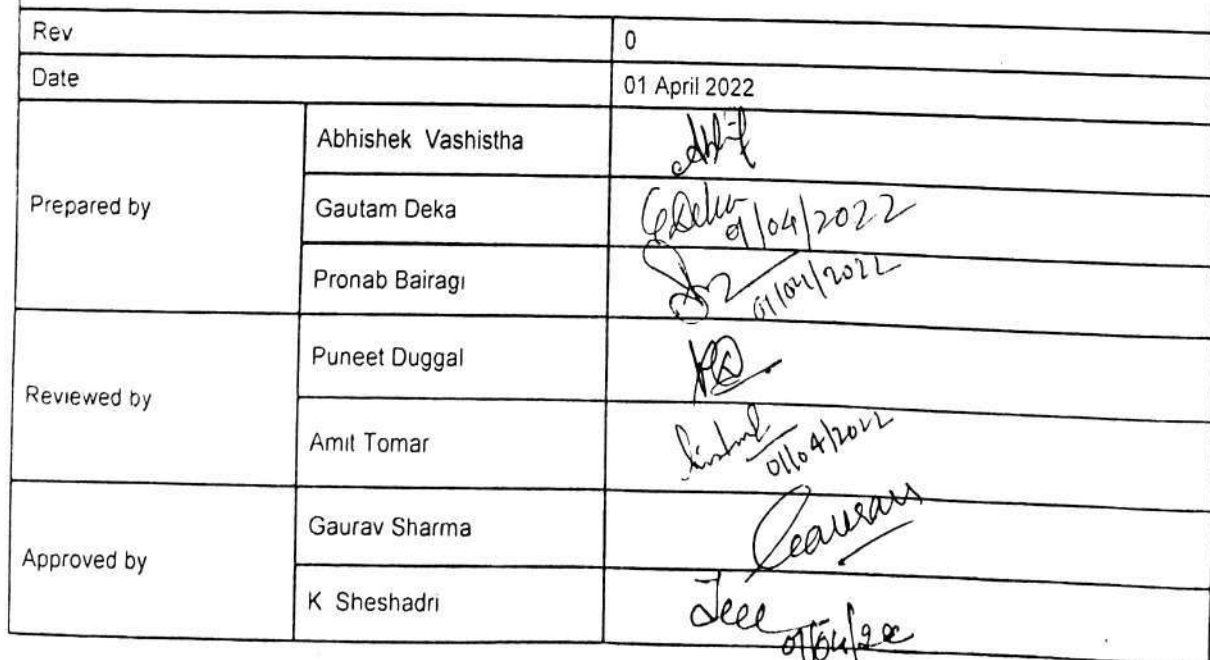 Rev 0
Date 01 April 2022
Prepared by
Abhishek Vashistha
Gautam Deka GDeka 01/04/2022
Pronab Bairagi 01/04/2022
Reviewed by
Puneet Duggal
Amit Tomar 01/04/2022
Approved by
Gaurav Sharma Gaurav
K Sheshadri